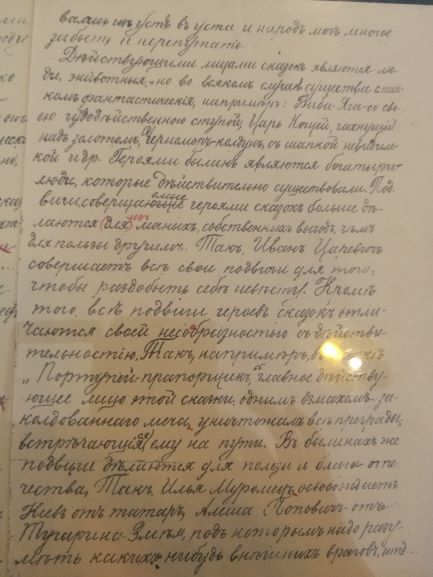 вались изъ устъ въ уста и народъ могъ многое
забыть и перепутать.
Дѣйствующими лицами сказокъ являются лю-
ди, животныя, но во всякомъ случаѣ существа слиш-
комъ фантастическія, напримѣръ: Баба-Яга со сво-
ею чудодѣйственною ступой, Царь Кощей, чахнущій
надъ златомъ, Черноморъ-колдунъ, съ шапкой невидим-
кой и др. Героями былинъ являются богатыри-
люди, которые дѣйствительно существовали. Под-
виги, совершаемые героями сказокъ больше дѣ-
лаются для личныхъ, собственныхъ выгодъ, чѣмъ
для пользы другихъ. Такъ, Иванъ Царевичъ
совершаетъ всѣ свои подвиги для того,
чтобы раздобыть себѣ невѣсту. Кромѣ
того, всѣ подвиги героевъ сказокъ отли-
чаются своей несообразностью съ дѣйстви-
тельностію. Такъ, напримѣръ, въ
„Портупей-прапорщикъ" главное дѣйству-
ющее лицо этой сказки, однимъ взмахомъ за-
колдованнаго меча, уничтожалъ всѣ преграды,
встрѣчающіяся ему на пути. Въ былинахъ же
подвиги дѣлаются для пользы и блага оте-
чества, Такъ, Илья Муромецъ, освобождаетъ
Кіевъ отъ татаръ, Алеша Поповичъ-отъ
Тугарина-Змѣя, подъ которымъ надо разу-
мѣть какихъ-нибудь внѣшнихъ враговъ, итд...